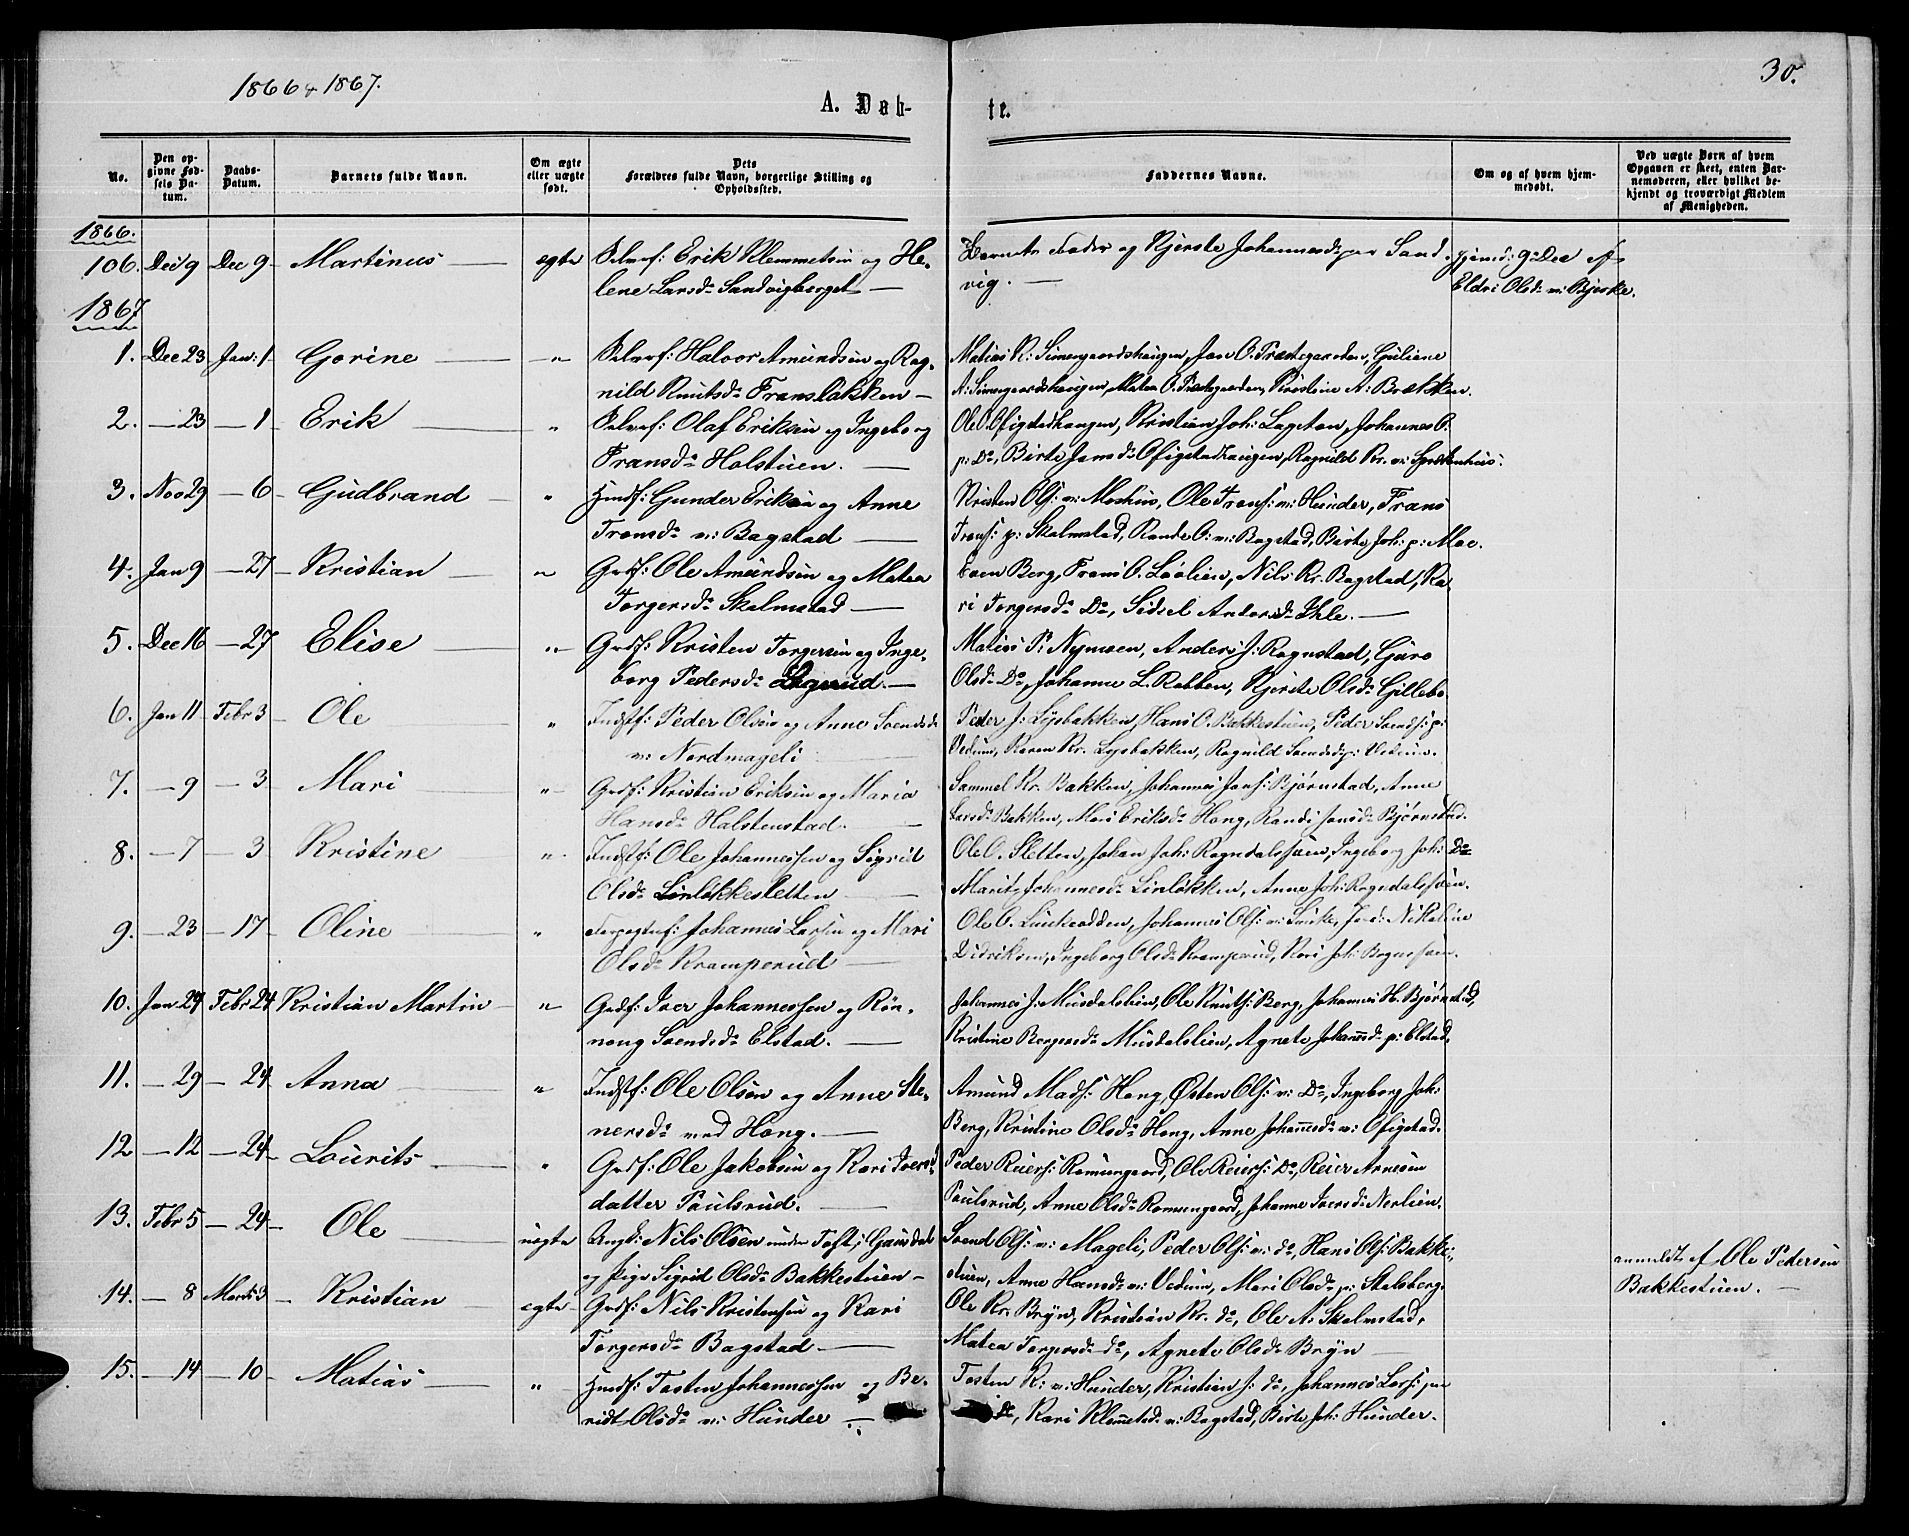 1866 & 1867.
30.
A. Døb-
te.
No.
Den opgivne Fødsels Datum.
Daabs-Datum.
Barnets fulde Navn.
Om ægte eller uægte født.
Dets Forældres fulde Navn, borgerlige Stilling og Opholdssted.
Faddernes Navne.
Om og af hvem hjemmedøbt.
Ved uægte Børn af hvem Opgaven er skeet, enten Barnemoderen, eller hvilket bekjendt og troværdigt Medlem af Menigheden.
1866.
106. Dec 9 Dec 9 Martinus ægte Selvef: Erik Klemmetsen og He-
lene Larsd. Sandvigberget
Barnets Fader og Kjersti Johannesd. paa Sand-
vig.
hjemd: 9 Dec af
Eldri Olsd. v: Bjerke.
1867
1. Dec 23 Jan: 1 Gorine " Selvef: Halvor Amundsen og Rag-
nild Knutsd. Fransbakken
Matias K: Simengaardshaugen, Jan O. Præstegaarden, Guliane
A: Simengaardshaugen, Matea O. Præstegaarden, Kristine A: Brækken.
2. 23 1 Erik " Selvef: Olaf Eriksen og Ingeborg
Fransd. Holstuen.
Ole O. Ofigstadhaugen, Kristian Joh: Lagetøn, Johannes O.
p: Do, Birte Jansd. Ofigstadhaugen, Ragnild Kr. v:
3. Nov 29 6 Gudbrand " Huusf: Gunder Eriksen og Anne
Fransd. v: Bagstad
Kristen Ols: v: Moshus, Ole Frans: v: Hunder, Frans
Frans: p: Skalmstad, Rande O: v: Bagstad, Birte Joh: p: Moe.
4. Jan 9 27 Kristian " Grdf: Ole Amundsen og Matea
Torgersd. Skalmstad
Berg, Frans O. Løvlien, Nils Kr. Bagstad, Ka-
ri Torgersd. Do, Sidsel Andersd. Ihle.
5. Dec 16 27 Elise " Grdf: Kristen Torgersen og Inge-
borg Pedersd. Lagerud.
Matias P: Nymoen, Anders J: Rognstad, Guro
Olsd. Do, Johanne L. Robben, Kjersti Olsd. Gillebo.
6. Jan 11 Febr 3 Ole " Indstf: Peder Olsen og Anne Svendsd.
v: Nordmageli
Peder J: Lysbakken, Hans O. Bakkestuen, Peder Svends: p:
Vedum, Karen Kr. Lysbakken, Ragnild Svendsd. p: Vedum.
7. 9 3 Mari " Grdf: Kristian Eriksen og Maria
Hansd. Halstenstad.
Sammel Kr. Bakken, Johannes Jans: Bjørnstad, Anne
Larsd. Bakken, Mari Eriksd. Hong, Randi Jansd. Bjørnstad.
8. 7 3 Kristine " Indstf: Ole Johannessen og Sigrid
Olsd. Linløkkesletten
Ole O. Sletten, Johan Joh: Rogndalssven, Ingeborg Joh: Do
Marit Johannesd. Linløkken, Anne Joh: Rogndalssven.
9. 23 17 Oline " Johannes Larsen og Mari
Olsd. Kramperud
Ole O. Johannes Ols: v: Nikoline
Didriksen, Ingeborg Olsd. Kramperud, Kari Joh:
10. Jan 24 Febr 24 Kristian Martin " Grdf: Iver Johannessen og Røn-
naug Svendsd. Elstad.
Johannes J: Musdalslien, Ole Knuts: Berg, Johannes H. Bjørnstad,
Kristine Bergersd. Musdalslien, Agnete Johannesd. p: Elstad,
11. 29 24 Anna " Indstf: Ole Olsen og Anne Ste-
nersd. med Hong.
Amund Mads: Hong, Østen Ols: v: Do, Ingeborg Joh:
Berg, Kristine Olsd. Hong, Anne Johannesd. v: Ofigstad.
12 12 24 Lourits " Grdf: Ole Jakobsen og Kari Ivers-
datter Paulsrud.
Peder Reiers: Romungaard, Ole Reiers: Do, Reier Arnesen
Paulsrud, Anne Olsd. Romungaard, Johanne Iversd. Nerlien.
13. Febr 5 24 Ole uægte Ungk: Nils Olsen under Toft i Gausdal
og Pige Sigrid Olsd. Bakkestuen
Svend Ols: v: Mageli, Peder Ols: v: do, Hans Ols: Bakke-
stuen, Anne Hansd. v: Vedum, Mari Olsd. p: Stalsberg.
anmeldt af Ole Pedersen
Bakkestuen.
14. 8 Marts 3 Kristian ægte Grdf: Nils Kristensen og Kari
Torgersd. Bagstad
Ole Kr. Bryn, Kristian Kr. do, Ole A: Skalmstad,
Matea Torgersd. do, Agnete Olsd. Bryn
15. 14 10 Matias " Huusf: Tosten Johannessen og Be-
ridt Olsd. v: Hunder
Tosten K: v: Hunder, Kristian J: do, Johannes Lars: paa
Do, Kari Klemetsd. v: Bagstad, Birte Joh: Hunder.